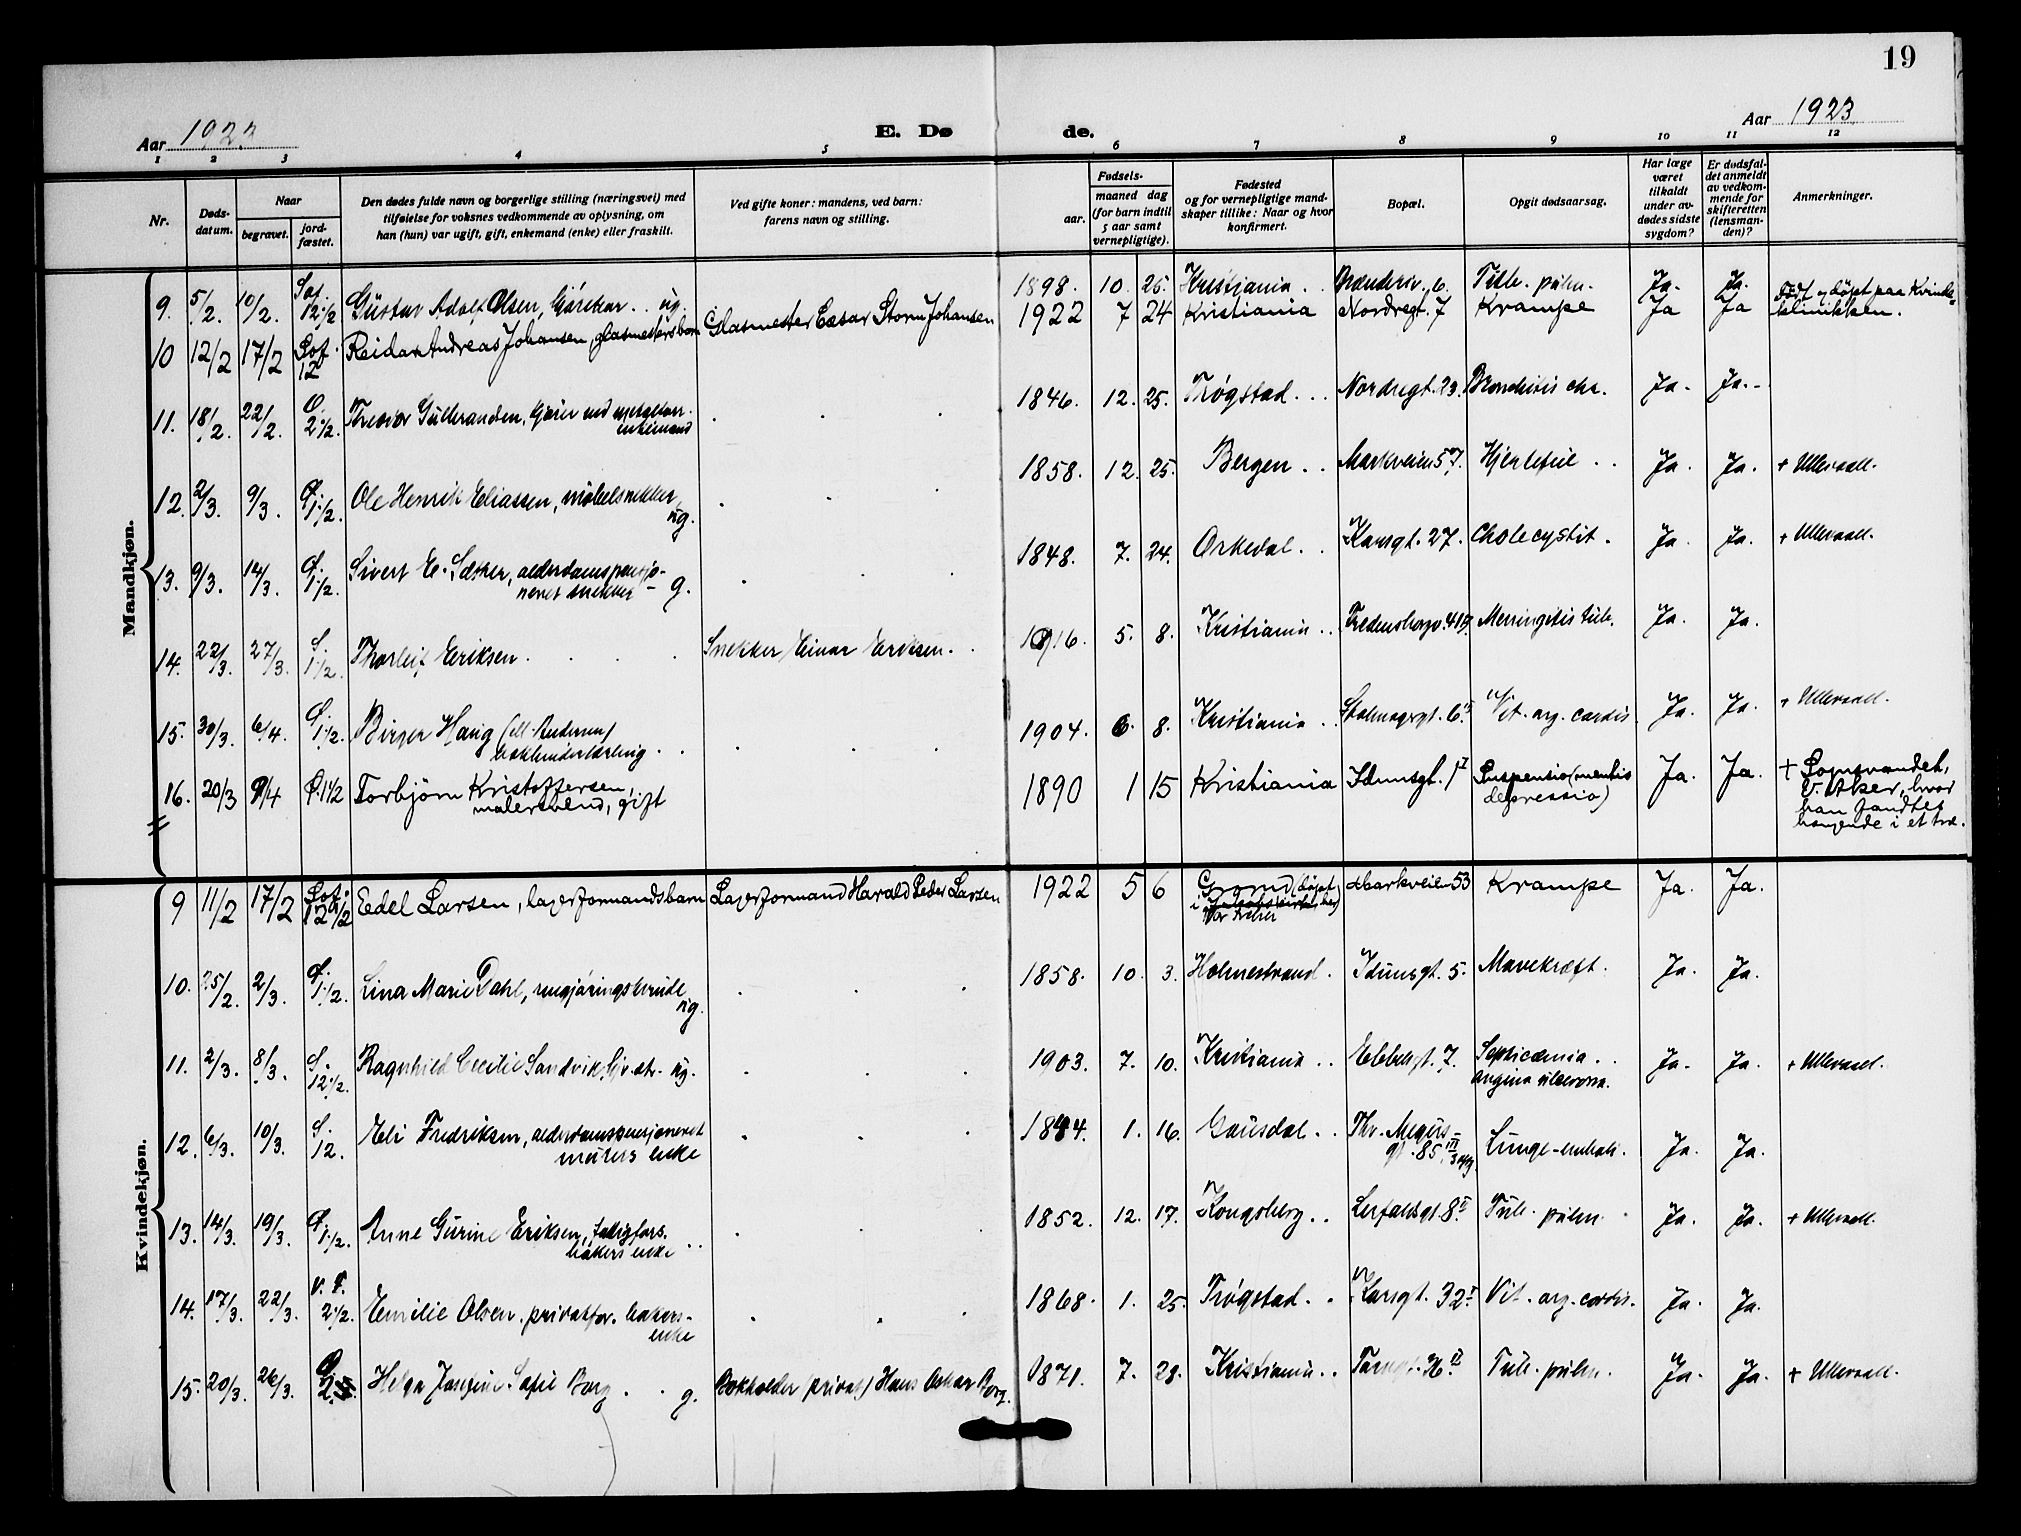 19
Aar 1923 E. Dø de. Aar 1923
1 2 3 4 5 6 7 8 9 10 11 12
Nr. Døds-datum. Naar begravet. jord-fæstet. Den dødes fulde navn og borgerlige stilling (næringsvei) med tilføielse for voksnes vedkommende av oplysning, om han (hun) var ugift, gift, enkemand (enke) eller fraskilt. Ved gifte koner: mandens, ved barn: farens navn og stilling. Fødsels- aar. maaned dag (for barn indtil 5 aar samt vernepligtige). Fødested og for vernepligtige mand-skaper tillike: Naar og hvor konfirmert. Bopæl. Opgit dødsaarsag. Har læge været tilkaldt under av-dødes sidste sygdom? Er dødsfal-det anmeldt av vedkom-mende for skifteretten (lensman-den)? Anmerkninger.
Mandkjøn.
9. 5/2. 10/2. Sof. 12 1/2 Gustav Adolf Olsen, . . ug. 1898. 10. 25. Kristiania . . 6. Tub. pulm. Ja. Ja.
10 12/2 17/2 Sof. 12 Reidar Andreas Johansen, glasmestersbarn Glasmester Cæsar Storm Johansen 1922 7 24 Kristiania Nordregt. 7 Krampe Ja Ja Født og døpt paa Kvinde-klinikken.
11. 18/2. 22/2. Ø. 2 1/2. Theodor Gulbrandsen, enkemand 1846. 12. 25. Trøgstad . . . Nordregt. 23. Bronchitis chr. Ja. Ja.
12. 2/3. 9/3. Ø. 1 1/2. Ole Henrik Eliassen, møbelsnekker ug. 1858. 12. 25. Bergen . . Markveien 57. Hjertefeil . . Ja. Ja. + Ullevaall.
13. 9/3. 14/3. Ø. 1 1/2. Sivert E. Sæther, alderdomspensjo-neret snekker – g. 1848. 7. 24. Orkedal . . 27. Cholecystit. Ja. Ja. + Ullevaall.
14. 22/3. 27/3. S. 1 1/2. Thorleif Eriksen . . . Snekker Einar Eriksen . . 1916. 5. 8. Kristiania . . Fredensborgv. 41 Meningitis tub. Ja. Ja.
15. 30/3. 6/4. Ø. 1 1/2. Birger Haug (ell. Andersen) 1904. 6. 8. Kristiania . . 6 II Vit. org. cordis. Ja. Ja. + Ullevaall.
16. 20/3 9/4 Ø. 1 1/2 Torbjørn Kristoffersen, malersvend, gift 1890 1 15 Kristiania Idunsgt. 1 I Suspensio (mentis depressio) Ja. Ja. + Sognsvandet, V. Aker, hvor han fandtes hængende i et træ.
Kvindekjøn.
9 11/2 17/2 Sof. 12 1/2 Edel Larsen, lagerformandsbarn Lagerformand Harald Peder Larsen 1922 5 6 (døpt i Vor Frelser her) Markveien 53 Krampe Ja. Ja.
10. 25/2. 2/3. Ø. 1 1/2. Lina Marie Dahl, rengjøringskvinde ug. 1858. 10. 3. Holmestrand. Idunsgt. 5. Mavekræft. Ja. Ja.
11. 2/3. 8/3. S. 12 1/2. Ragnhild Cecilie Sandvik, ug. 1903. 7. 10. Kristiania . . Ebbelsgt. 7. Septicæmia . . angina ulcerosa. Ja. Ja. + Ullevaall.
12. 6/3. 10/3. S. 12. Eli Fredriksen, alderdomspensjoneret murers enke 1844. 1. 16. Gausdal . . Thv. Meyers-gt. 85 III Lunge-emboli. Ja. Ja.
13. 14/3. 19/3. Ø. 1 1/2. Anne Gurine Eriksen, fattigfors. bakers enke . . 1852. 12. 17. Kongsberg . . Lerfaldsgt. 8 II Tub. pulm. Ja. Ja. + Ullevaall.
14. 17/3. 22/3. V. F. 2 1/2. Emilie Olsen, privatfor. bakers-enke 1868. 1. 25. Trøgstad . . 32 I Vit. org. cordis. Ja. Ja.
15. 20/3. 26/3. Ø. 2. Helga Josefine Sofie Borg . . g. Bokholder (privat) Hans Oskar Borg. 1871. 7. 28. Kristiania . . II Tub. pulm. Ja. Ja. + Ullevaall.